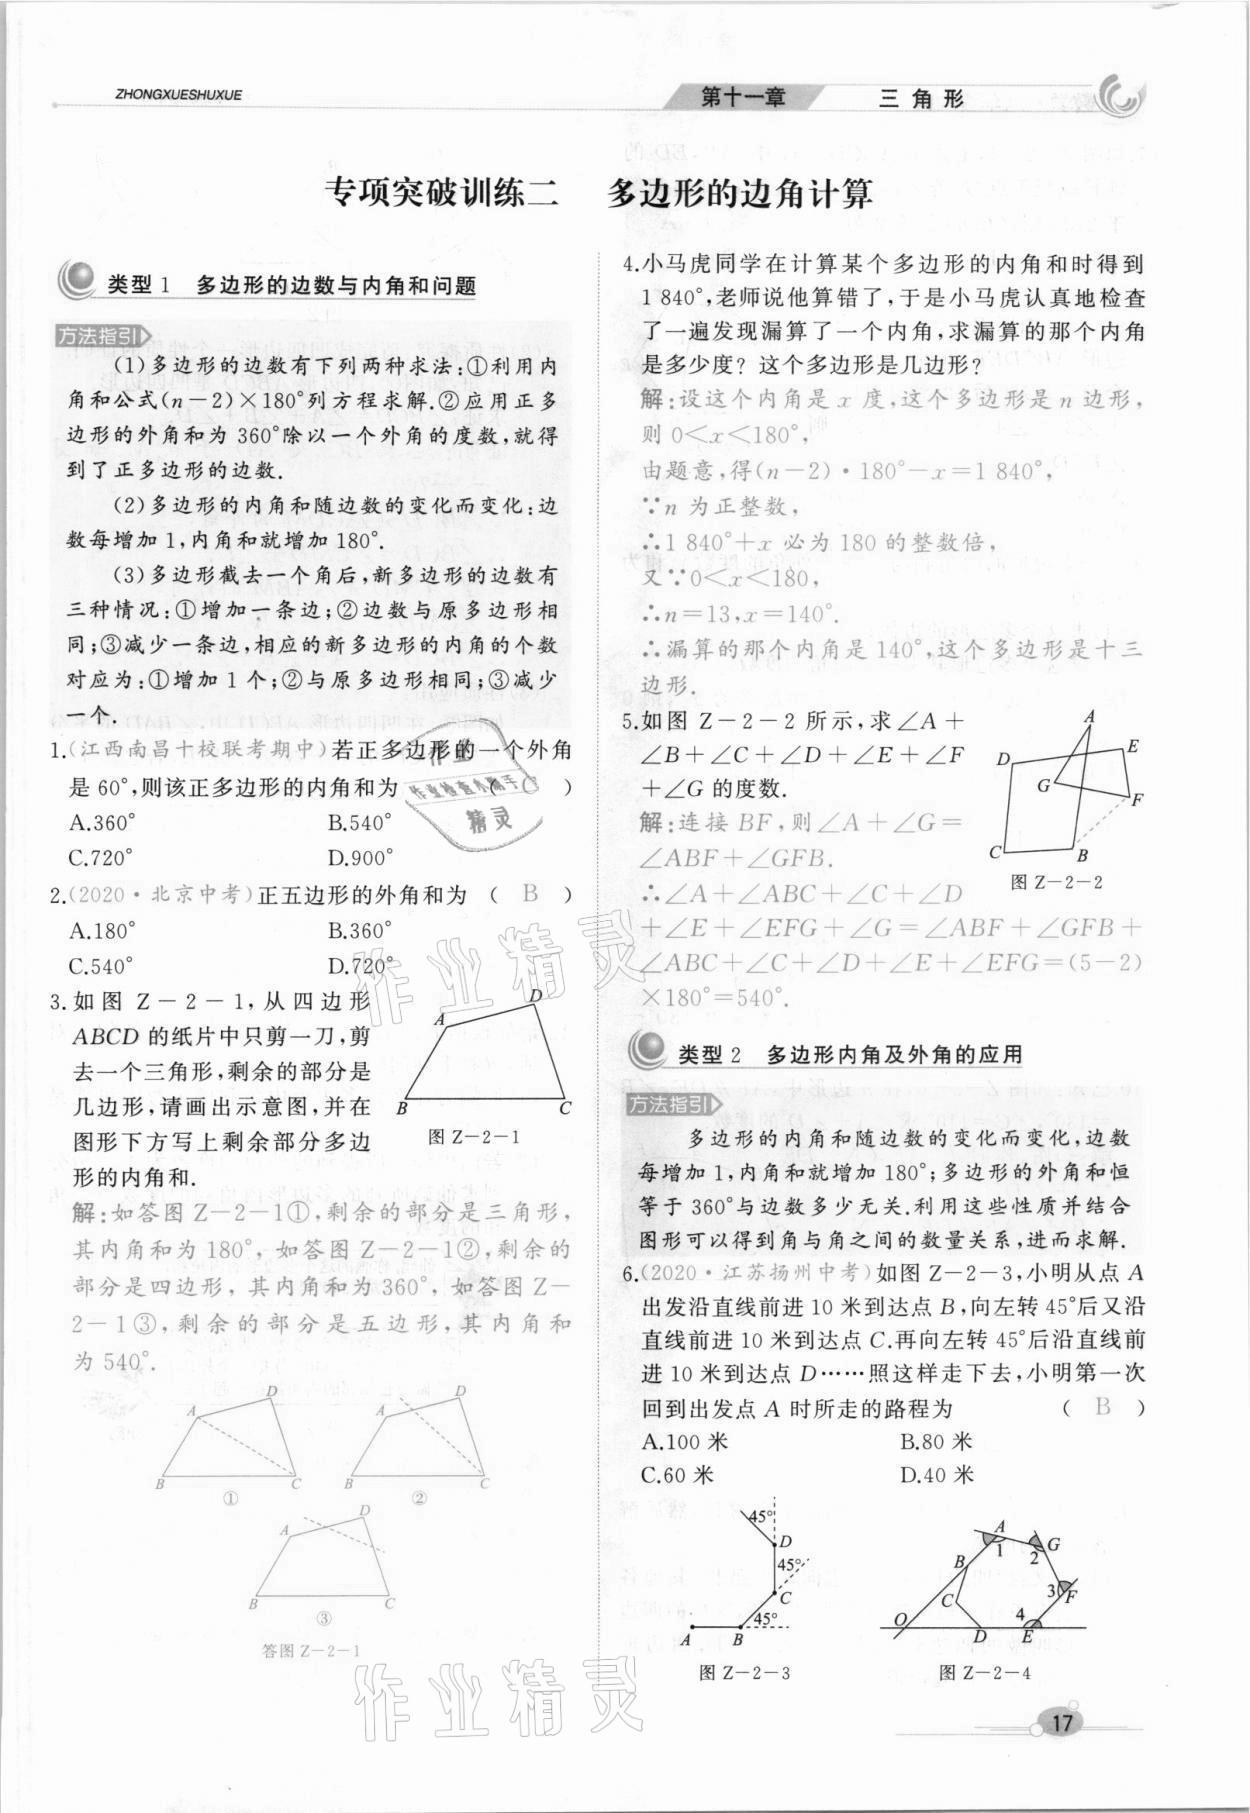 ZHONGXUESHUXUE
第十一章 三角形
专项突破训练二 多边形的边角计算
类型1 多边形的边数与内角和问题
方法指引
(1)多边形的边数有下列两种求法:①利用内
角和公式(n-2)×180°列方程求解.②应用正多
边形的外角和为360°除以一个外角的度数,就得
到了正多边形的边数.
(2)多边形的内角和随边数的变化而变化:边
数每增加1,内角和就增加180°.
(3)多边形截去一个角后,新多边形的边数有
三种情况:①增加一条边;②边数与原多边形相
同;③减少一条边,相应的新多边形的内角的个数
对应为:①增加1个;②与原多边形相同;③减少
一个.
1.(江西南昌十校联考期中)若正多边形的一个外角
是60°,则该正多边形的内角和为 ( C )
A.360° B.540°
C.720° D.900°
2.(2020·北京中考)正五边形的外角和为 ( B )
A.180° B.360°
C.540° D.720°
3.如图Z-2-1,从四边形
ABCD的纸片中只剪一刀,剪
去一个三角形,剩余的部分是
几边形,请画出示意图,并在
图形下方写上剩余部分多边
形的内角和.
A D B C
图Z-2-1
解:如答图Z-2-1①,剩余的部分是三角形,
其内角和为180°,如答图Z-2-1②,剩余的
部分是四边形,其内角和为360°,如答图Z-
2-1③,剩余的部分是五边形,其内角和
为540°.
A D B C
①
A D B C
②
A D B C
③
答图Z-2-1
4.小马虎同学在计算某个多边形的内角和时得到
1 840°,老师说他算错了,于是小马虎认真地检查
了一遍发现漏算了一个内角,求漏算的那个内角
是多少度?这个多边形是几边形?
解:设这个内角是x度,这个多边形是n边形,
则0<x<180°,
由题意,得(n-2)·180°-x=1 840°,
∵n为正整数,
∴1 840°+x必为180的整数倍,
又∵0<x<180,
∴n=13,x=140°.
∴漏算的那个内角是140°,这个多边形是十三
边形.
5.如图Z-2-2所示,求∠A+
∠B+∠C+∠D+∠E+∠F
+∠G的度数.
A D E G F C B
图Z-2-2
解:连接BF,则∠A+∠G=
∠ABF+∠GFB.
∴∠A+∠ABC+∠C+∠D
+∠E+∠EFG+∠G=∠ABF+∠GFB+
∠ABC+∠C+∠D+∠E+∠EFG=(5-2)
×180°=540°.
类型2 多边形内角及外角的应用
方法指引
多边形的内角和随边数的变化而变化,边数
每增加1,内角和就增加180°;多边形的外角和恒
等于360°与边数多少无关.利用这些性质并结合
图形可以得到角与角之间的数量关系,进而求解.
6.(2020·江苏扬州中考)如图Z-2-3,小明从点A
出发沿直线前进10米到达点B,向左转45°后又沿
直线前进10米到达点C.再向左转45°后沿直线前
进10米到达点D……照这样走下去,小明第一次
回到出发点A时所走的路程为 ( B )
A.100米 B.80米
C.60米 D.40米
45° D 45° C 45° A B
图Z-2-3
A 1 2 G B 3 F C O D 4 E
图Z-2-4
17
作业
作业检查小助手
精灵
作业精灵
作业精灵